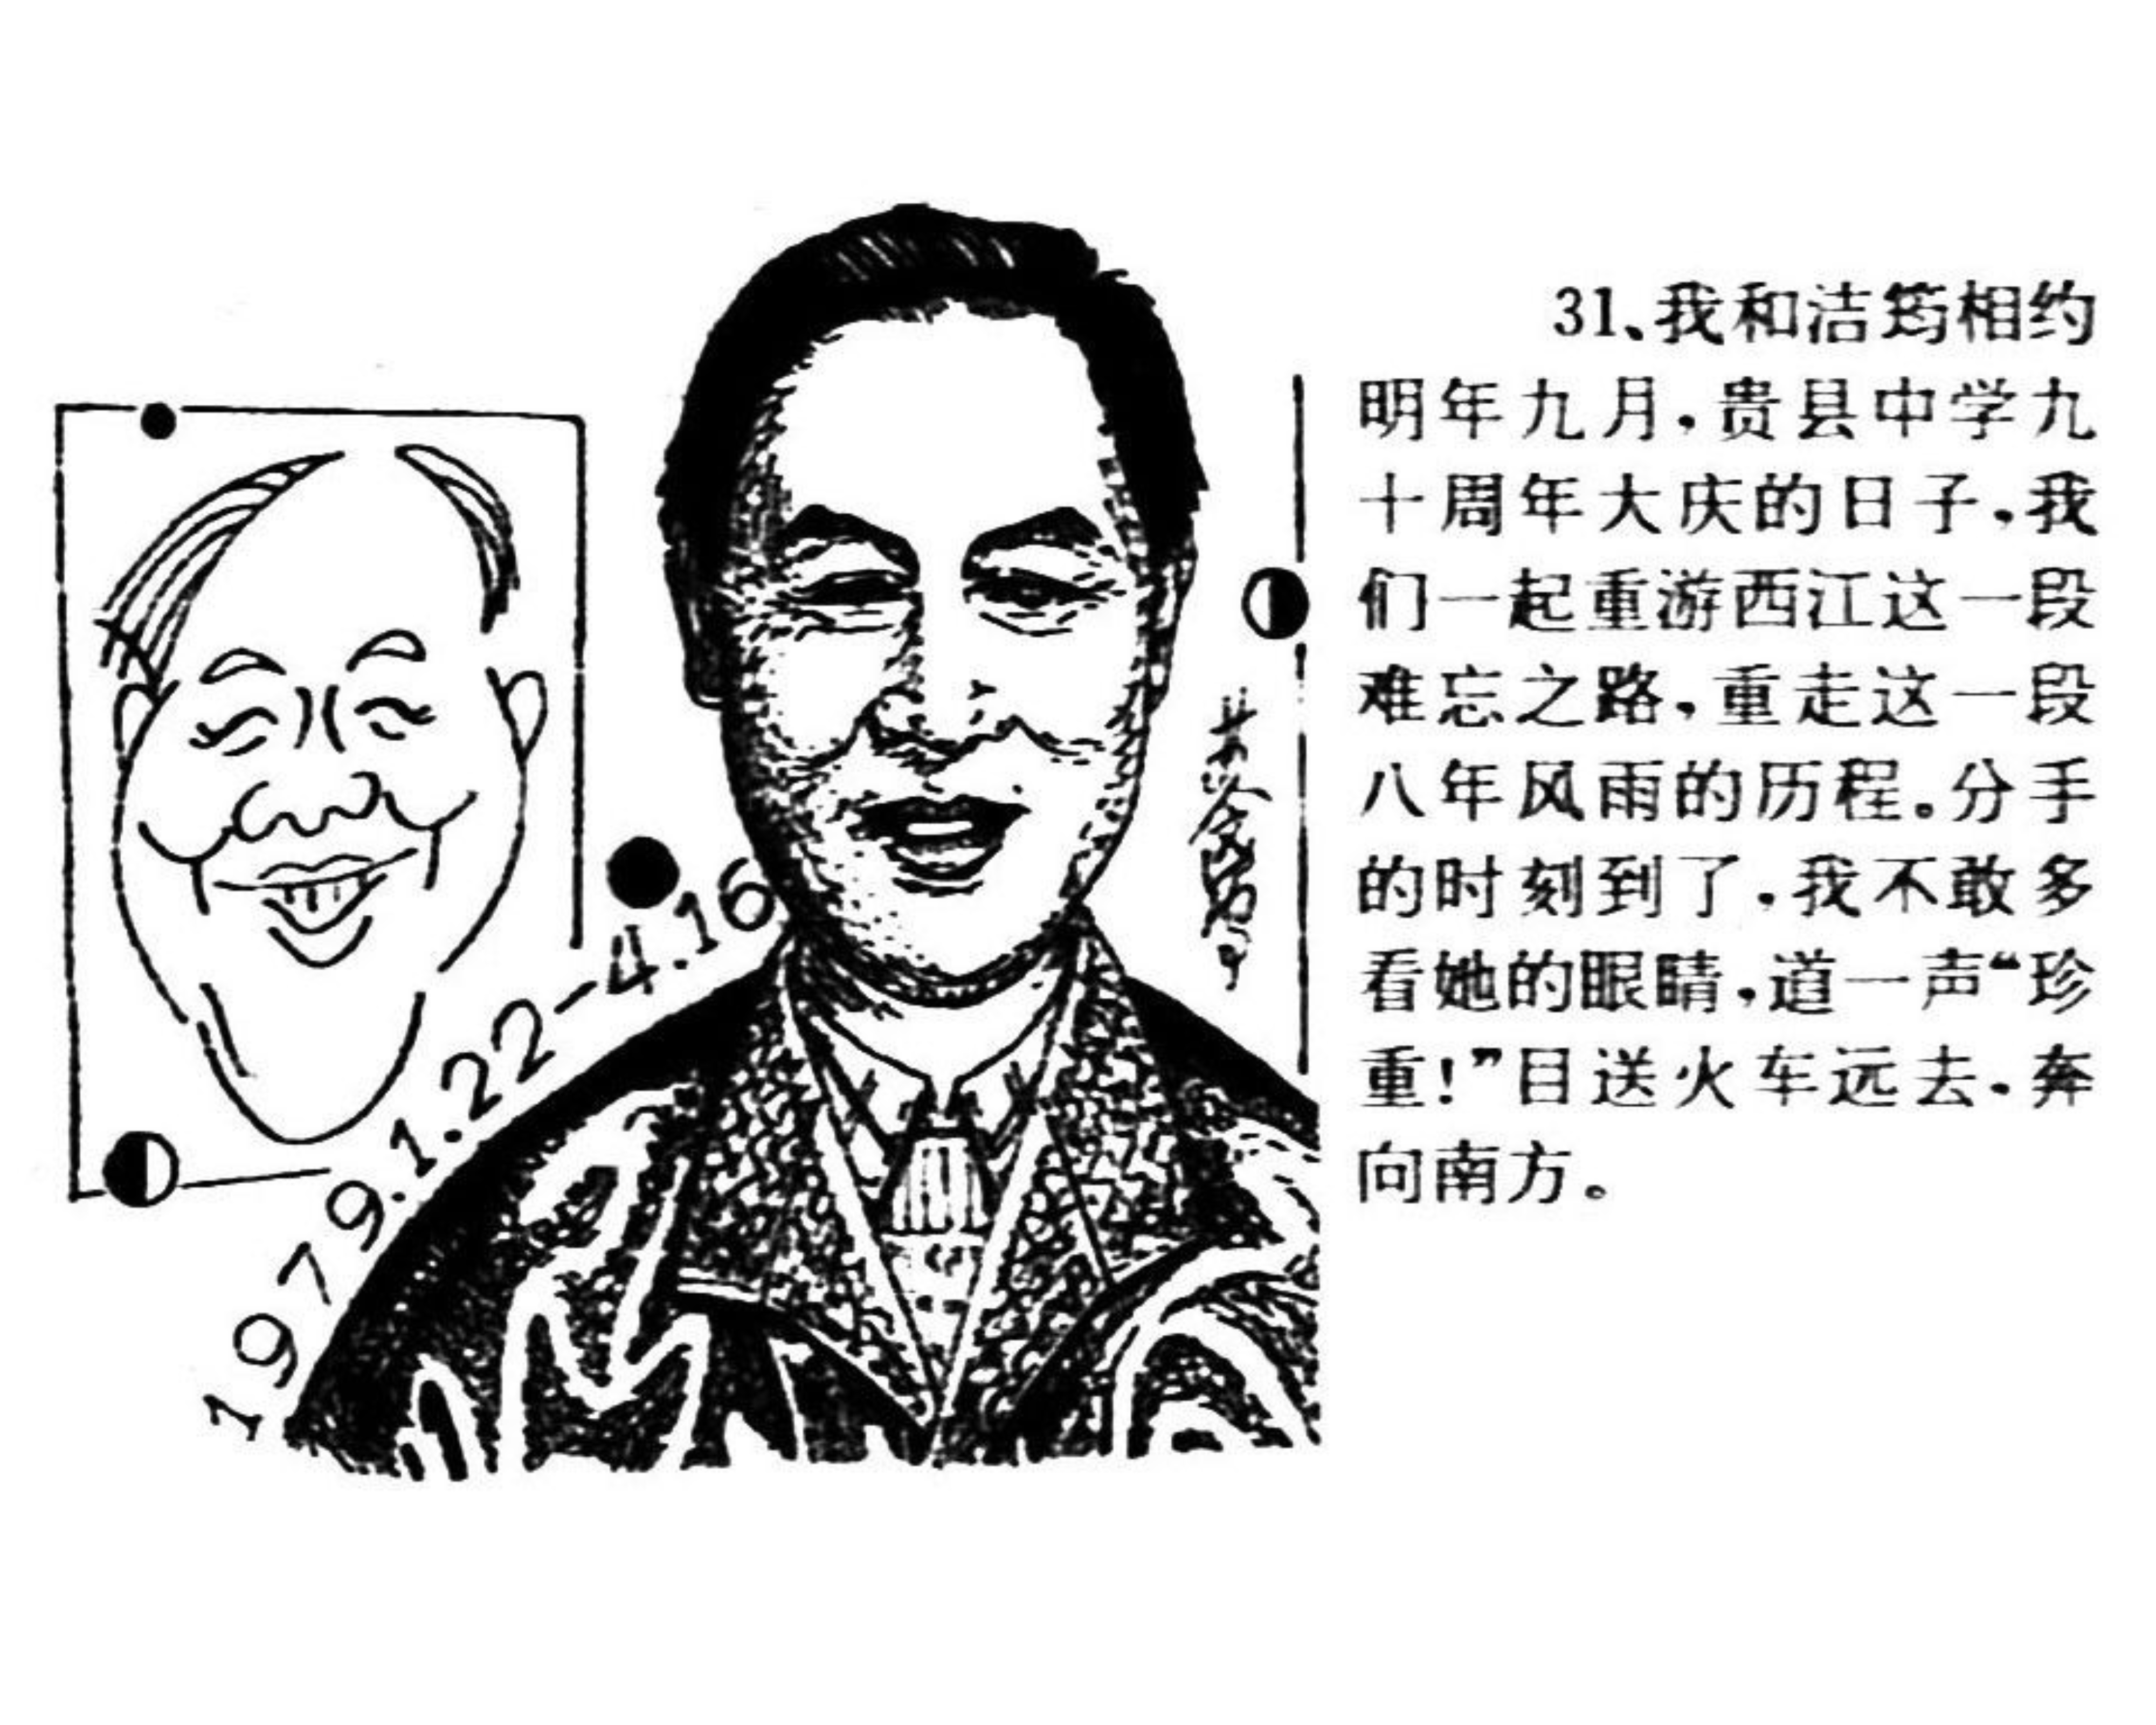 31、我和洁筠相约
明年九月，贵县中学九
十周年大庆的日子，我
们一起重游西江这一段
难忘之路，重走这一段
八年风雨的历程。分手
的时刻到了，我不敢多
看她的眼睛，道一声“珍
重！”目送火车远去，奔
向南方。
1979.1.22-4.16